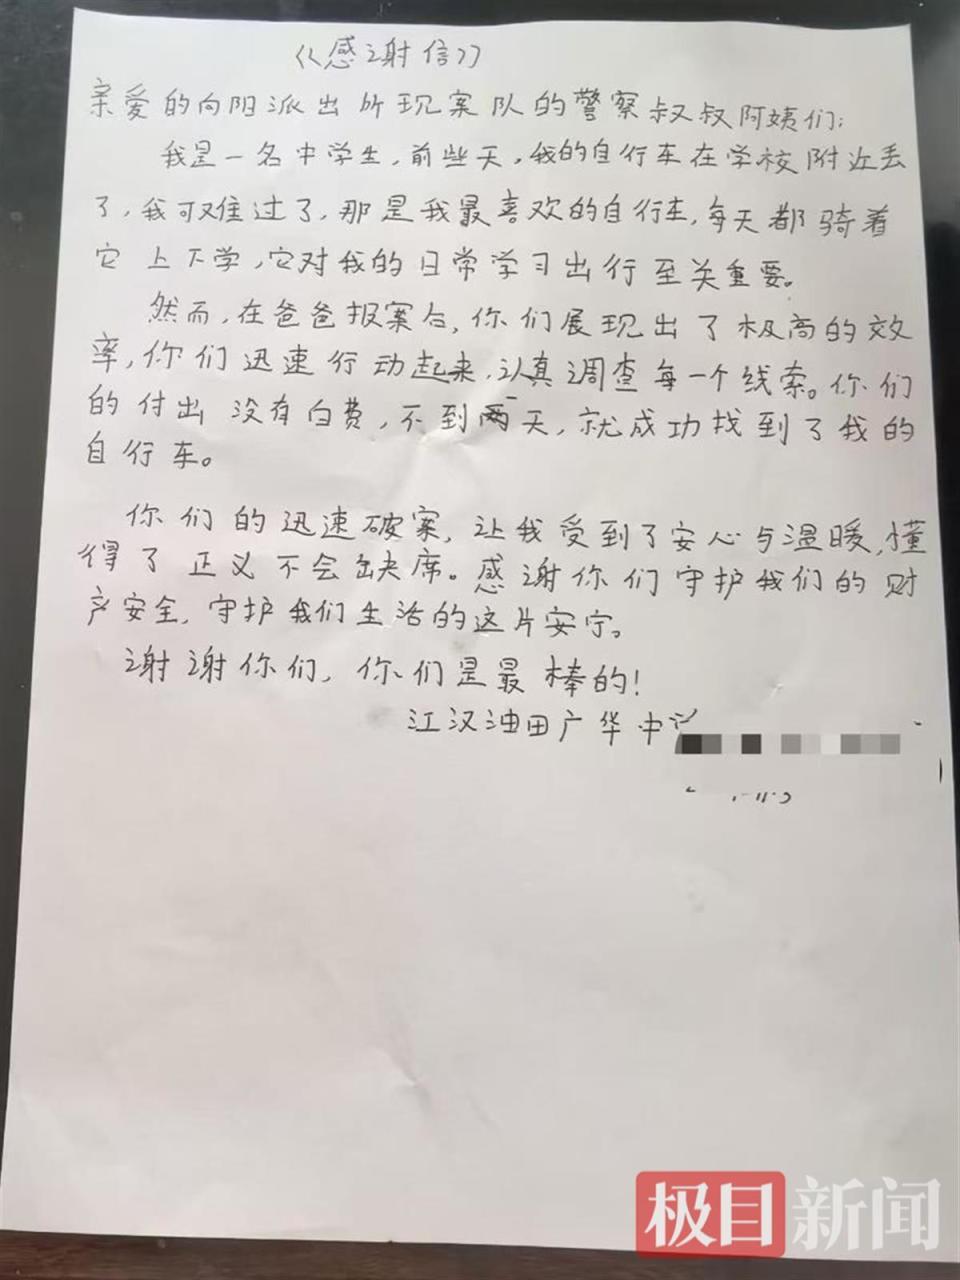 《感谢信》
亲爱的向阳派出所现案队的警察叔叔阿姨们:
我是一名中学生,前些天,我的自行车在学校附近丢
了,我可难过了,那是我最喜欢的自行车,每天都骑着
它上下学,它对我的日常学习出行至关重要。
然而,在爸爸报案后,你们展现出了极高的效
率,你们迅速行动起来,认真调查每一个线索。你们
的付出没有白费,不到两天,就成功找到了我的
自行车。
你们的迅速破案,让我受到了安心与温暖,懂
得了正义不会缺席。感谢你们守护我们的财
产安全,守护我们生活的这片安宁。
谢谢你们,你们是最棒的!
江汉油田广华中
极目新闻